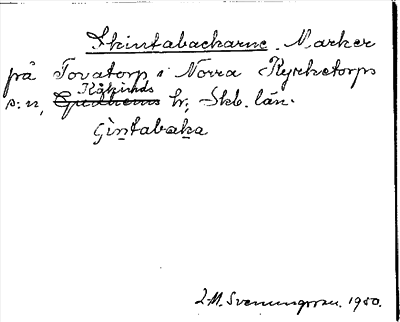 Skintabackarne. Marker
på Tovatorp i Norra Kyrketorps
s:n, Kåkinds hr, Skb. län.
Gudhems
s̨ìntabaka
L.M. Svenungsson. 1950.